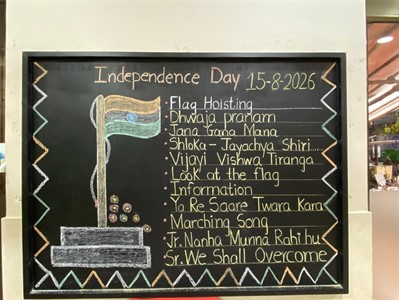 Independence Day 15-8-2026
· Flag Hoisting
· Dhwaja pranam
· Jana Gana Mana
· Shloka - Jayachya Shiri...
· Vijayi Vishwa Tiranga
· Look at the flag
· Information
· Ya Re Saare Twara Kara
· Marching Song
· Jr. Nanha Munna Rahi hu
· Sr. We Shall Overcome